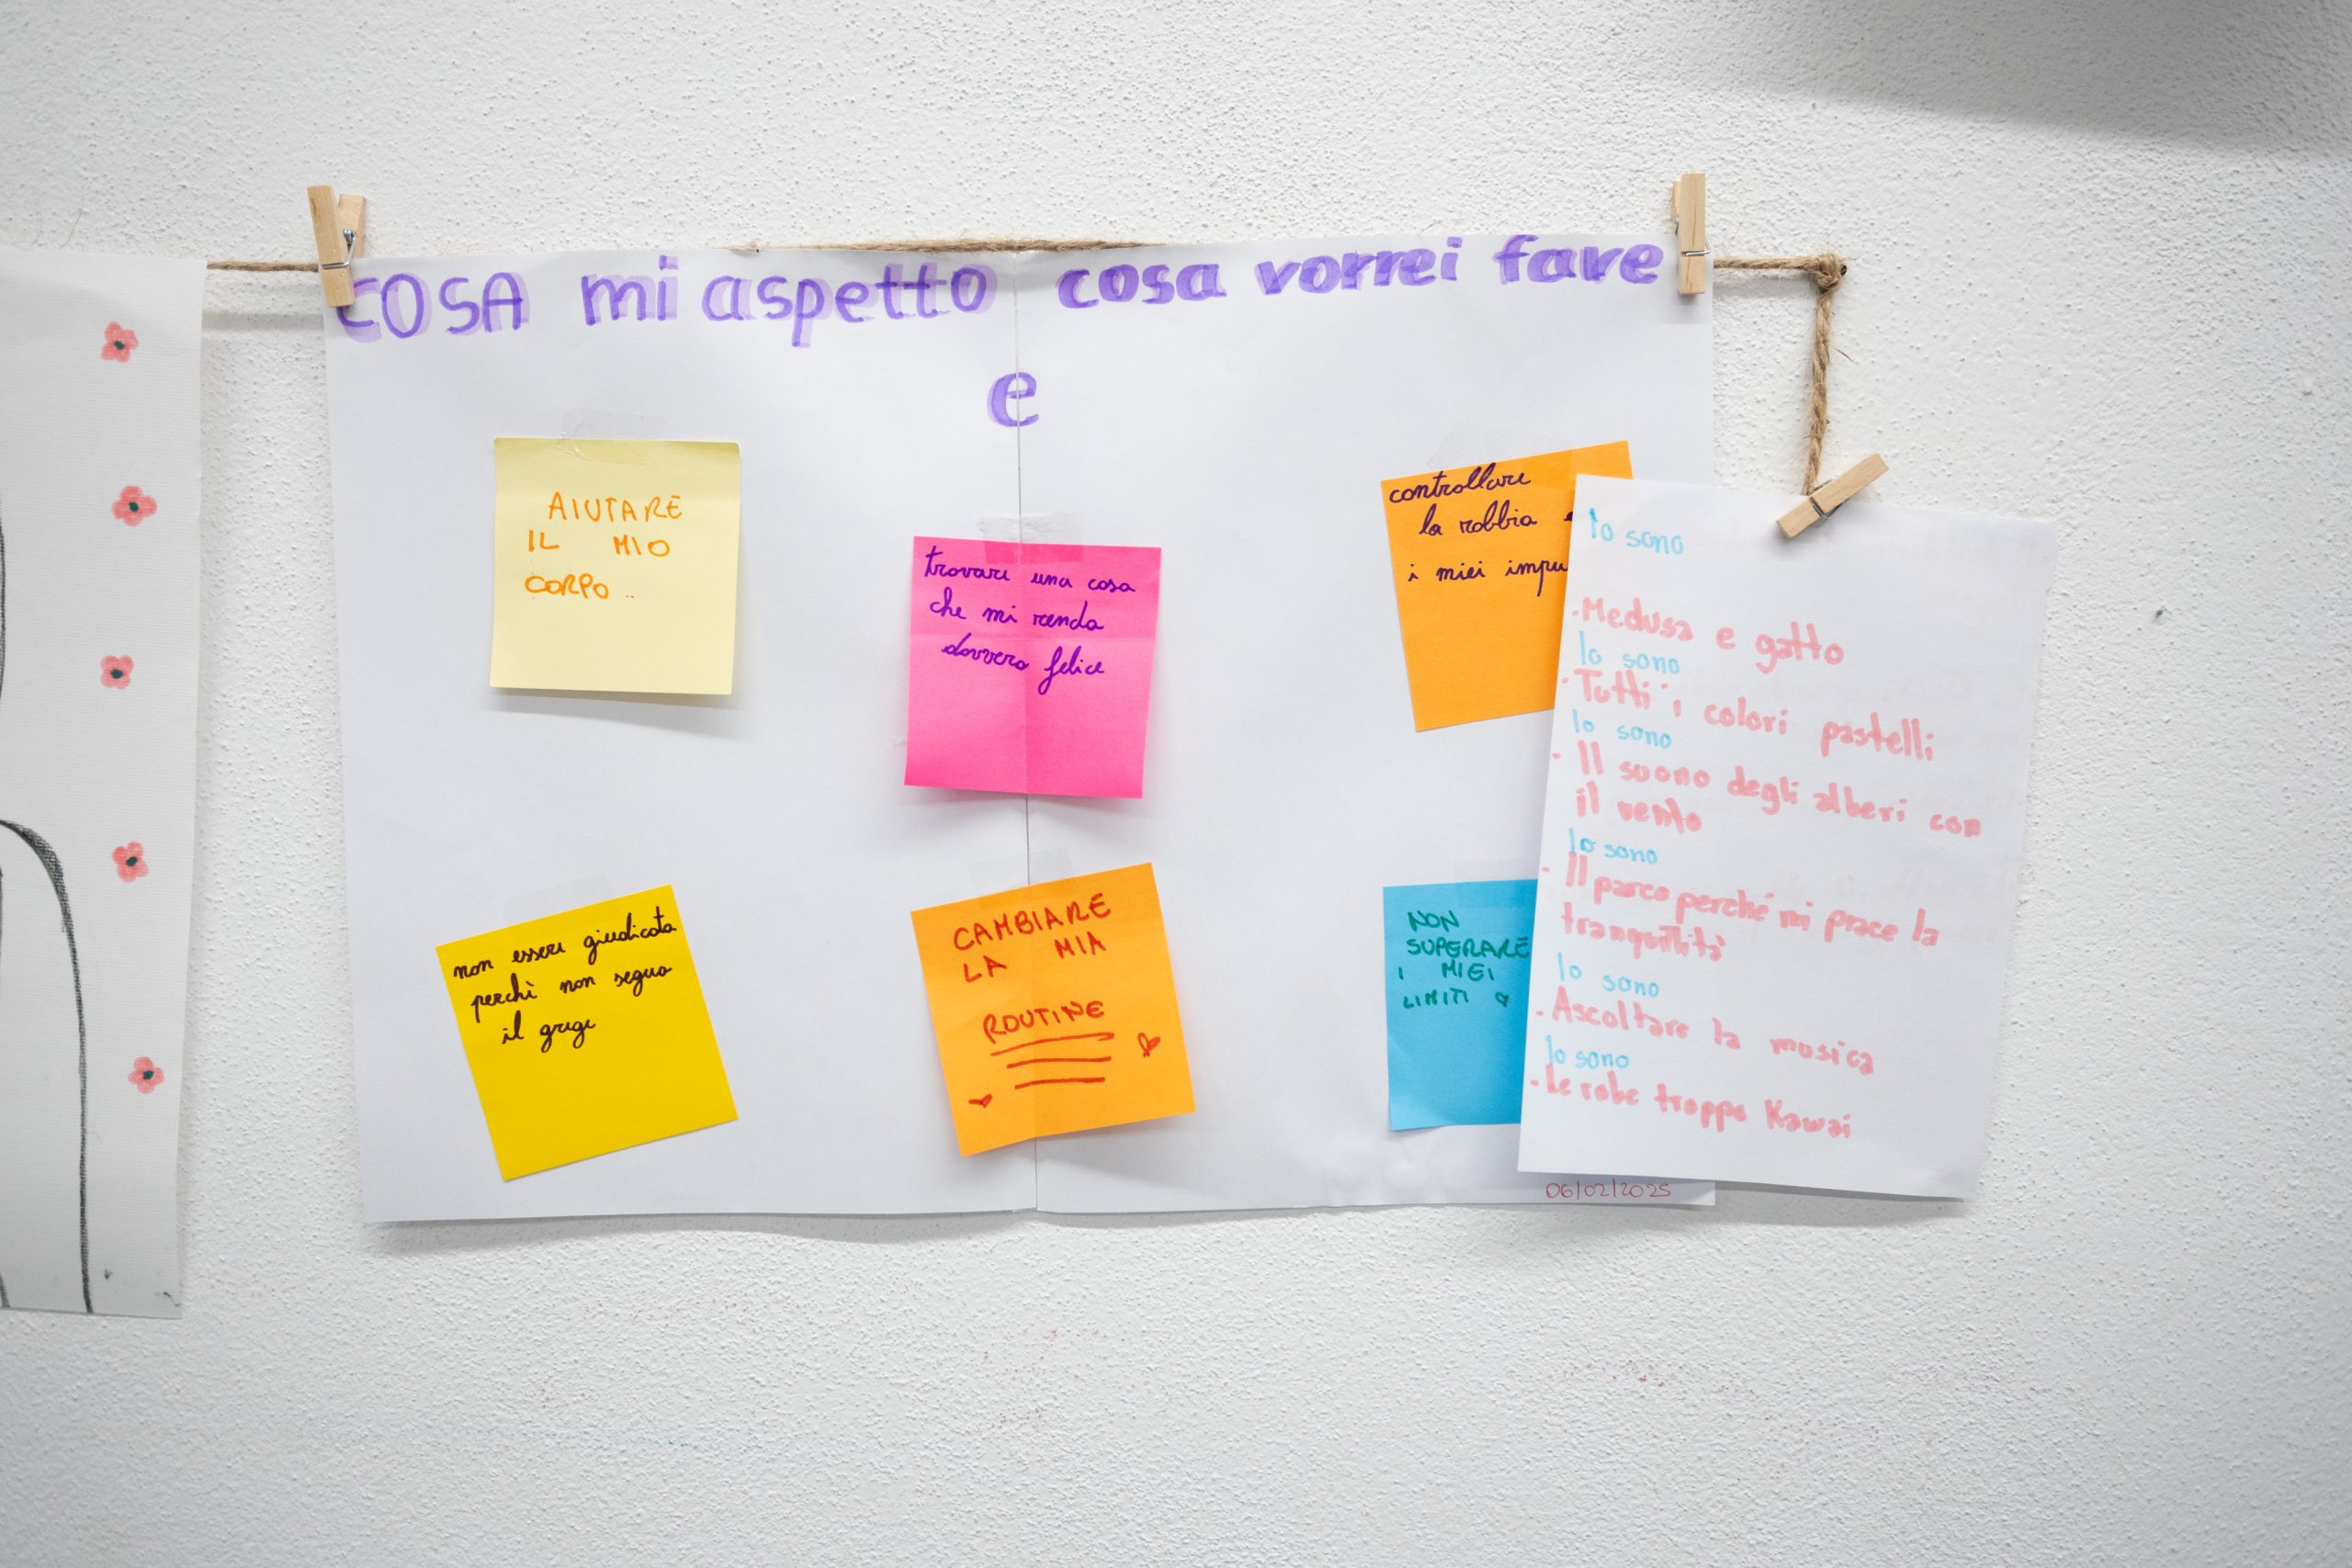 COSA mi aspetto cosa vorrei fare
e
AIUTARE
IL MIO
CORPO ..
trovare una cosa
che mi renda
davvero felice
controllare
la rabbia
i miei impu
non essere giudicata
perchè non seguo
il gregge
CAMBIARE
LA MIA
ROUTINE
NON
SUPERARE
I MIEI
LIMITI
Io sono
·Medusa e gatto
Io sono
·Tutti i colori pastelli
Io sono
· Il suono degli alberi con
il vento
Io sono
· Il parco perché mi piace la
tranquillità
Io sono
·Ascoltare la musica
Io sono
·Le robe troppo Kawai
06/02/2025